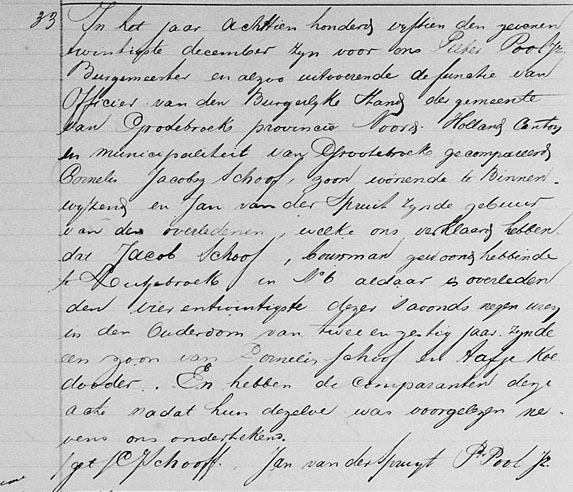 33 In het jaar achttien honderd vyftien den zevenen
twintigste december zyn voor ons Pieter Pool Jz.
Burgemeester en alzoo uitvoerende de functie van
Officier van den Burgerlyke Stand der gemeente
van Grootebroek provincie Noord-Holland Canton
en municipaliteit van Grootebroek gecompareerd
Cornelis Jacobsz Schoof, zoon wonende te Binnen-
wyzend en Jan van der Spruit zynde gebuur
van den overledenen, welke ons verklaard hebben
dat Jacob Schoof, bouwman gewoond hebbende
te Lutjebroek in No 6 aldaar is overleden
den vierentwintigste dezer 's avonds negen uren
in den Ouderdom van twee en zestig jaar. Zynde
een zoon van Cornelis Schoof en Aafje Koe
dooder. En hebben de comparanten deze
acte nadat hun dezelve was voorgelezen ne-
vens ons ondertekend.
get JC Schooff. Jan van der Spruyt Pr. Pool Jz.